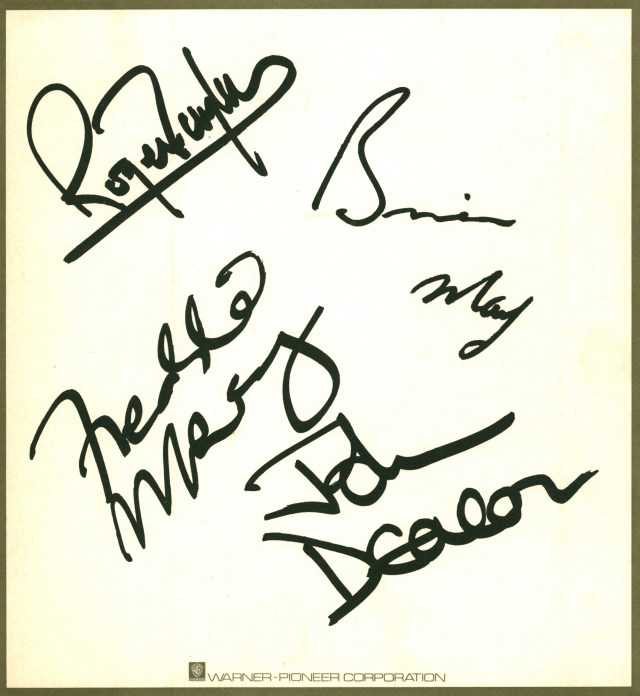 Roger Taylor
Brian
May
Freddie
Mercury
John
Deacon
WB
WARNER-PIONEER CORPORATION